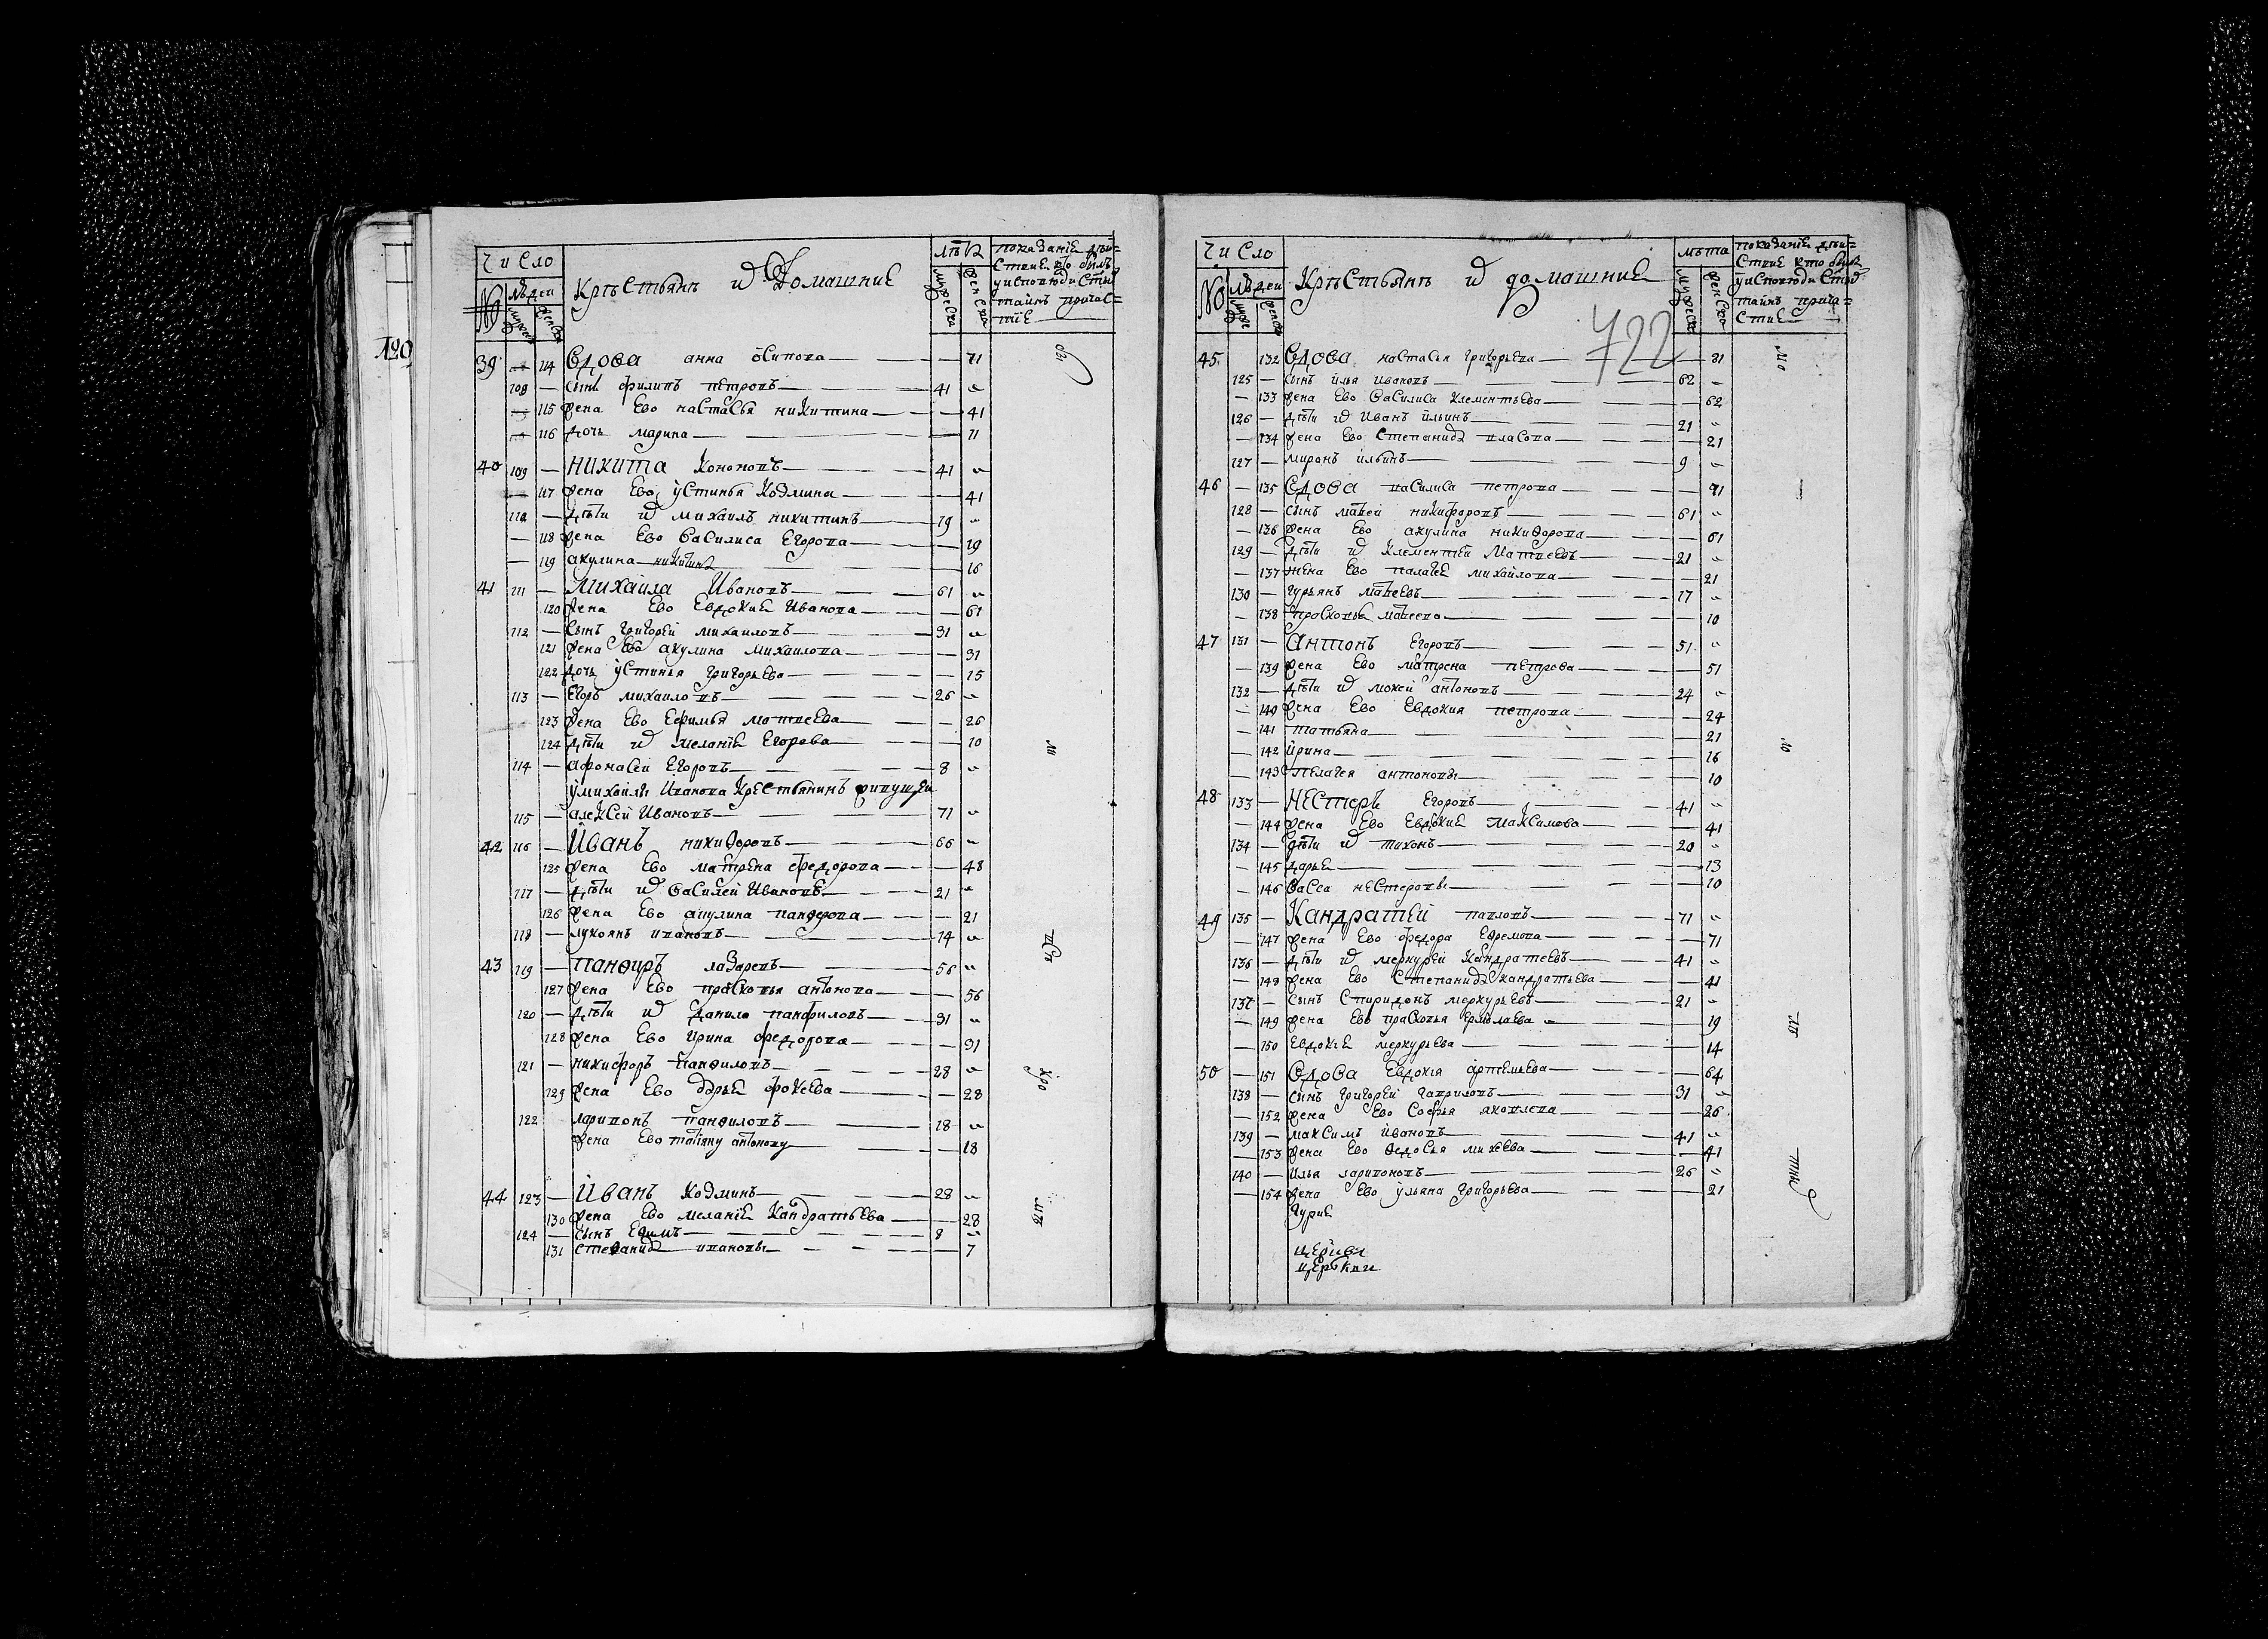 120
Число
лѣтъ
показаніе дѣи=
ствие кто былъ
у исповѣди Стых
таинъ причас=
тіе
№
людеи
мужеска
женска
Крѣстьянъ и домашние
мужеска
женска
39 114 Вдова анна осипова 71
108 сынъ филипъ петровъ 41
115 жена Ево настасья никитина 41
116 дочь марина 11
40 109 никита Кононовъ 41
117 жена Ево устинья Козмина 41
110 дѣти их михаилъ никитинъ 19
118 жена Ево василиса Егорова 19
119 акулина никитина 16
41 111 михаила Ивановъ 61
120 жена Ево Евдокиѣ Иванова 61
112 сынъ григореи михаиловъ 31
121 жена Ево акулина михаилова 31
122 дочь устинья григорьева 15
113 Егоръ михаиловъ 26
123 жена Ево Ефимья матвеева 26
124 дѣти их меланіѣ Егорова 10
114 афонасеи Егоровъ 8
у михаилы Иванова Крестьянинъ живущеи
115 алеКсеи Ивановъ 71
42 116 Иванъ никиѳоровъ 66
125 жена Ево матрена федорова 48
117 дѣти их василеи Ивановъ 21
126 жена Ево акулина панферова 21
118 лукоянъ ивановъ 14
43 119 панѳиръ лазаревъ 56
127 жена Ево прасковья антонова 56
120 дѣти их данило панфиловъ 31
128 жена Ево Ирина федорова 31
121 никифоръ панѳиловъ 28
129 жена Ево дарьѣ фокеева 28
122 ларивонъ панѳиловъ 18
жена Ево татіяну антонову 18
44 123 Иванъ Козминъ 28
130 жена Ево меланіѣ Кандратьева 28
124 сынъ Ефимъ 8
131 степанида ивановы 7
Число
лѣта
показаніе дѣи=
ствие кто былъ
у исповѣди Стых
таинъ прича=
стие
№
людеи
мужеска
женска
Крѣстьянъ и домашние
мужеска
женска
722
45 132 Вдова настасья григорьева 81
125 сынъ илья ивановъ 62
133 жена Ево василиса клементьева 62
126 дѣти их Иванъ ильинъ 21
134 жена Ево степанида власова 21
127 миронъ ильинъ 9
46 135 Вдова василиса петрова 91
128 сынъ матвеи никифоровъ 61
136 жена Ево акулина никиѳорова 61
129 дѣти их Клементеи Матвеевъ 21
137 жена Ево палагѣ михаилова 21
130 гурьянъ матвеевъ 17
138 прасковьѣ матвеева 10
47 131 Антонъ Егоровъ 51
139 жена Ево матрена петрова 51
132 дѣти их мокеи антоновъ 24
140 жена Ево Евдокия петрова 24
141 татьяна 21
142 Ирина 16
143 Пелагея антоновы 10
48 133 Нестеръ Егоровъ 41
144 жена Ево Евдокиѣ Максимова 41
134 дѣти их тихонъ 20
145 дарьѣ 13
146 васса нестеровы 10
49 135 Кандратеи павловъ 71
147 жена Ево федора Ефремова 71
136 дѣти их меркуреи Кандратеевъ 41
148 жена Ево степанида кандратьева 41
137 сынъ спиридонъ меркурьевъ 21
149 жена Ево прасковья Ермолаева 19
150 Евдокіѣ меркурьева 14
50 151 Вдова Евдокія артемьева 64
138 сынъ григореи гавриловъ 31
152 жена Ево софья яковлева 26
139 максимъ ивановъ 41
153 жена Ево ѳедосья михеева 41
140 илья ларивоновъ 26
154 жена Ево ульяна григорьева 21
гурие
церкви